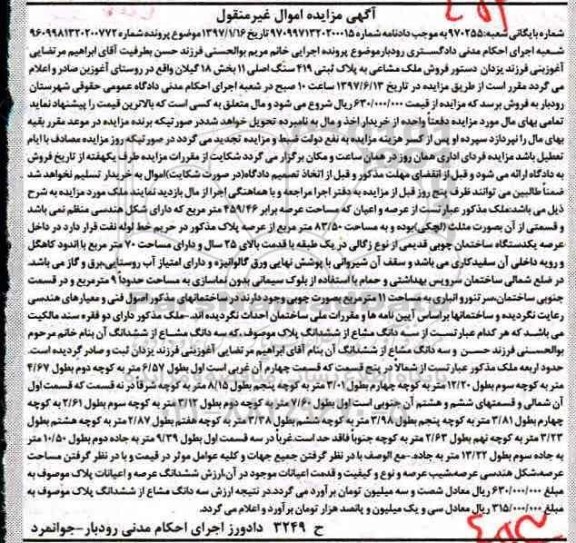 آگهی مزایده اموال غیرمنقول
شماره بایگانی شعبه:۹۷۰۲۵۵ به موجب دادنامه شماره ۹۷۰۹۹۷۱۳۲۰۲۰۰۰۱۵ مورخ ۱۳۹۷/۱/۱۶ موضوع پرونده شماره ۹۶۰۹۹۸۱۳۲۰۲۰۰۷۷۲
شعبه اجرای احکام مدنی دادگستری رودبارموضوع پرونده اجرایی خانم مریم بوالحسنی فرزند حسن بطرفیت آقای ابراهیم مرتضایی
آغوزبنی فرزند یزدان دستور فروش ملک مشاعی به پلاک ثبتی ۴۱۹ سنگ اصلی ۱۱ بخش ۱۸ گیلان واقع در روستای آغوزبن صادر و اعلام
می گردد مقرر است از طریق مزایده در تاریخ ۱۳۹۷/۶/۱۳ ساعت ۱۰ صبح در شعبه اجرای احکام مدنی دادگاه عمومی حقوقی شهرستان
رودبار به فروش برسد که مزایده از قیمت ۶۳۰/۰۰۰/۰۰۰ ریال شروع می شود و مال متعلق به کسی است که بالاترین قیمت را پیشنهاد نماید
تمامی بهای مال مورد مزایده دفعتا واحده از خریدار اخذ و مال به نامبرده تحویل خواهد شددر صورتیکه برنده مزایده در موعد مقرر بقیه
بهای مال را نپردازد سپرده او پس از کسر هزینه مزایده به نفع دولت ضبط و مزایده تجدید می گردد در صورتیکه روز مزایده مصادف با ایام
تعطیل باشد مزایده فردای اداری همان روز در همان ساعت و مکان برگزار می گردد شکایت از مقررات مزایده ظرف یکهفته از تاریخ فروش
به دادگاه ارائه می شود و قبل از انقضای مهلت مذکور و قبل از اتخاذ تصمیم دادگاه(در صورت شکایت)اموال به خریدار تسلیم نخواهد شد
ضمناً طالبین می توانند ظرف پنج روز قبل از مزایده به دفتر اجرا مراجعه و با هماهنگی اجرا از مال بازدید نمایند ملک مورد مزایده به شرح
ذیل می باشد:ملک مذکور عبارتست از عرصه و اعیان که مساحت عرصه برابر ۴۵۹/۴۶ متر مربع که دارای شکل هندسی منظم نمی باشد
و قسمتی از آن بصورت مثلث (لچکی)بوده و به مساحت ۸۳/۵۰ متر مربع از عرصه پلاک مذکور در حریم خط لوله نفت قرار دارد در داخل
عرصه یکدستگاه ساختمان چوبی قدیمی از نوع زگالی در یک طبقه با قدمت بالای ۲۵ سال و دارای مساحت ۷۰ متر مربع با اندود کاهگل
و رویه داخلی آن سفیدکاری می باشد و سقف آن شیروانی با پوشش نهایی ورق گالوانیزه و دارای امتیاز آب روستایی،برق و گاز می باشد.
در ضلع شمالی ساختمان سرویس بهداشتی و حمام با استفاده از بلوک سیمانی بدون نماسازی به مساحت حدوداً ۹ مترمربع و در قسمت
جنوبی ساختمان،سرتنورو انباری به مساحت ۱۱ مترمربع بصورت چوبی وجود دارند در ساختمانهای مذکور اصول فنی و معیارهای هندسی
رعایت نگردیده و ساختمانها براساس آیین نامه ها و مقررات ملی ساختمان احداث نگردیده اند. ملک مذکور دارای دو فقره سند مالکیت
می باشد که هر کدام عبارتست از سه دانگ مشاع از ششدانگ پلاک موصوف،که سه دانگ مشاع از ششدانگ آن بنام خانم مرحوم
بوالحسنی فرزند حسن و سه دانگ مشاع از ششدانگ آن بنام آقای ابراهیم مرتضایی آغوزبنی فرزند یزدان ثبت و صادر گردیده است.
حدود اربعه ملک مذکور عبارتست از شمالا در پنج قسمت که قسمت چهارم آن غربی است اول بطول ۶/۵۷ متر به جاده دوم بطول ۴/۶۷
متر به کوچه سوم بطول ۱۲/۲۰ متر به کوچه چهارم بطول ۳/۰۱ متر به کوچه پنجم بطول ۸/۱۵ متر به کوچه شرقاً در نه قسمت که قسمت اول
آن شمالی و قسمتهای ششم و هشتم آن جنوبی است اول بطول ۷/۶۰ متر به کوچه دوم بطول ۳/۱۲ متر به کوچه سوم بطول ۲/۶۱ به کوچه
چهارم بطول ۳/۸۱ متر به کوچه پنجم بطول ۳/۹۸ متر به کوچه ششم بطول ۳/۳۸ متر به کوچه هفتم بطول ۲/۸۷ متر به کوچه هشتم بطول
۳/۲۳ متر به کوچه نهم بطول ۲/۶۳ متر به کوچه جنوباً فاقد حد است.غرباً در سه قسمت اول بطول ۹/۳۹ متر به جاده دوم بطول ۱۰/۵۰ متر
به جاده سوم بطول ۱۳/۲۲ متر به جاده. -مع الوصف با در نظر گرفتن جمیع جهات و کلیه عوامل موثر در قیمت و با در نظر گرفتن مساحت
عرصه،شکل هندسی عرصه،شیب عرصه و نوع و کیفیت و قدمت اعیانات موجود در آن،ارزش ششدانگ عرصه و اعیانات پلاک موصوف به
مبلغ ۶۳۰/۰۰۰/۰۰۰ ریال معادل شصت و سه میلیون تومان برآورد می گردد.در نتیجه ارزش سه دانگ مشاع از ششدانگ پلاک موصوف به
مبلغ ۳۱۵/۰۰۰/۰۰۰ ریال معادل سی و یک میلیون و پانصد هزار تومان برآورد و اعلام می گردد.
ح ۳۲۴۹ دادورز اجرای احکام مدنی رودبار-جوانمرد